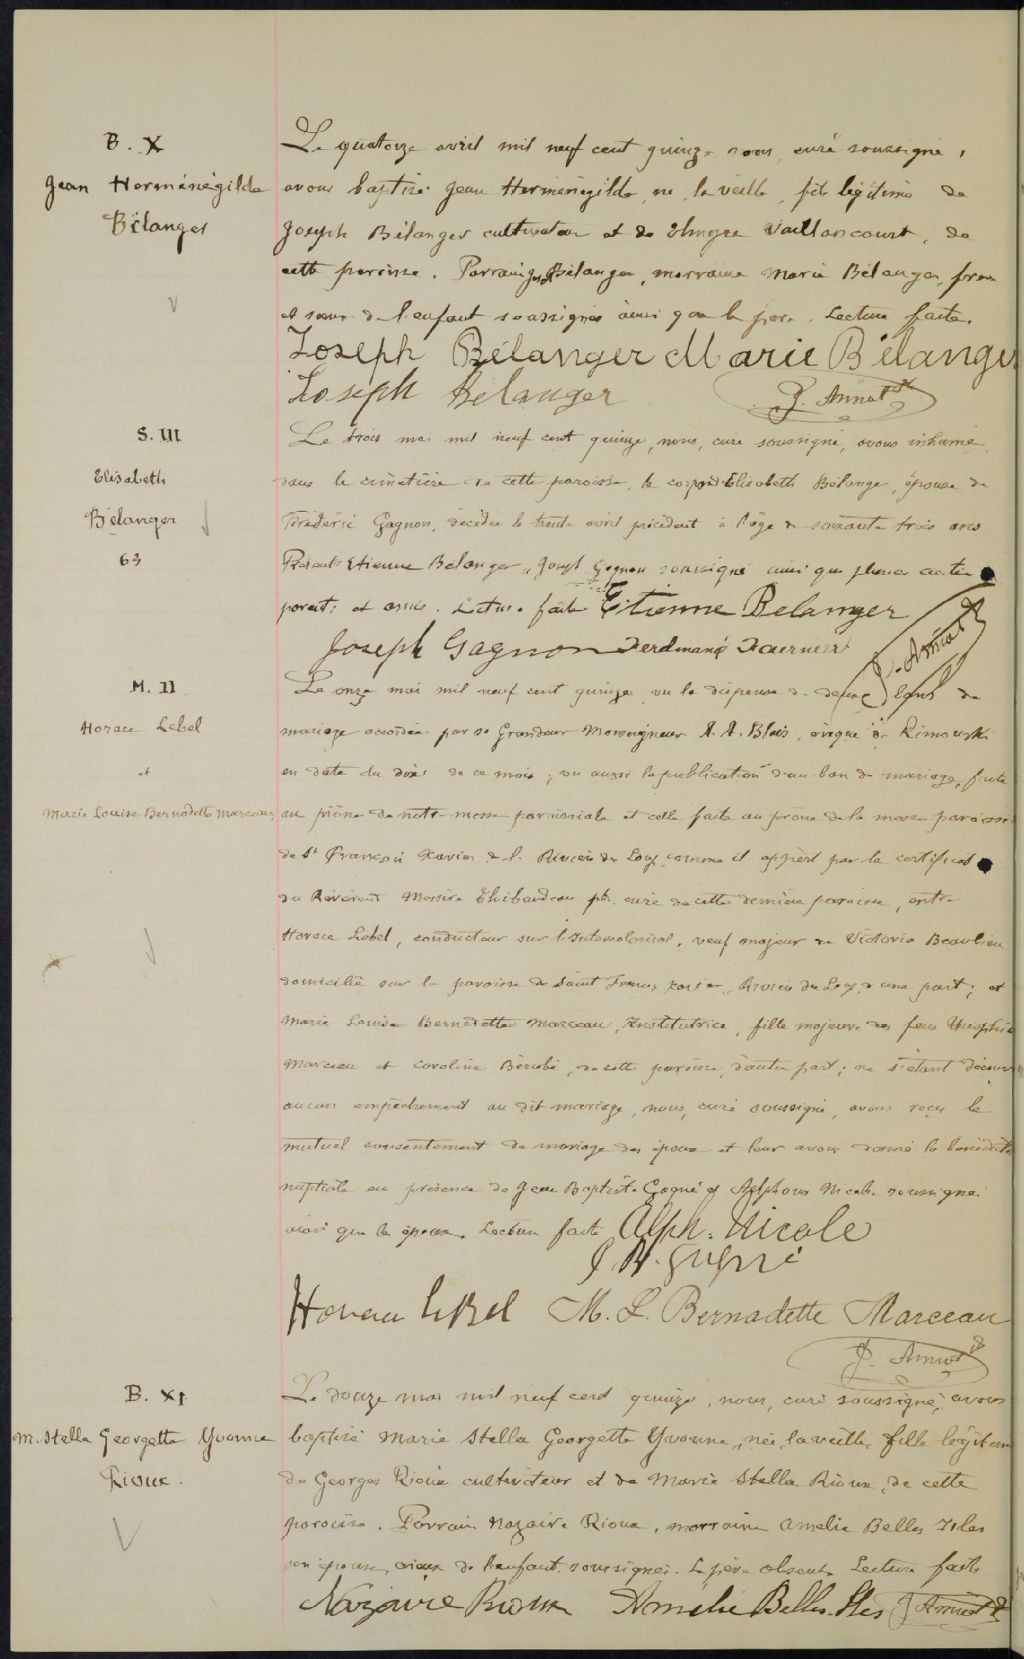 B. X
Jean Herménégilde
Bélanger
Le quatorze avril mil neuf cent quinze nous, curé soussigné,
avons baptisé Jean Herménégilde, né la veille, fils légitime de
Joseph Bélanger cultivateur et de Elmyre Vaillancourt, de
cette paroisse. Parrain Bélanger, marraine Marie Bélanger, frère
et sœur de l'enfant soussignés ainsi que le père. Lecture faite.
Joseph Bélanger Marie Bélanger
Joseph Bélanger
J. Amiot
S. III
Elisabeth
Bélanger
63
Le trois mai mil neuf cent quinze, nous, curé soussigné, avons inhumé
dans le cimetière de cette paroisse, le corps d'Elisabeth Bélanger, épouse de
Frédéric Gagnon, décédée le trente avril précédent à l'âge de soixante trois ans
Présents Etienne Belanger, Joseph Gagnon soussignés ainsi que plusieurs autres
parents et amis. Lecture faite Etienne Belanger
Joseph Gagnon Ferdinand Fournier
J. Amiot
M. II
Horace Lebel
et
Marie Louise Bernadette Marceau
Le onze mai mil neuf cent quinze vu la dispense de deux bans de
mariage accordée par sa Grandeur Monseigneur A. A. Blais, évêque de Rimouski
en date du dix de ce mois; vu aussi la publication d'un ban de mariage, faite
au prône de notre messe paroissiale et celle faite au prône de la messe paroissiale
de St François Xavier de la Rivière du Loup comme il appert par le certificat
du Révérend Messire Thibaudeau ptr. curé de cette dernière paroisse, entre
Horace Lebel, conducteur sur l'Intercolonial, veuf majeur de Victoria Beaulieu
domicilié sur la paroisse de Saint François Xavier, Rivière du Loup d'une part; et
Marie Louise Bernadette Marceau, Institutrice, fille majeure des feus Théophile
Marceau et Caroline Bérubé, de cette paroisse, d'autre part; ne s'étant découvert
aucun empêchement au dit mariage, nous, curé soussigné, avons reçu le
mutuel consentement de mariage des époux et leur avons donné la bénédiction
nuptiale en présence de Jean Baptiste Gagné et Alphonse Nicole soussignés
ainsi que les époux. Lecture faite Alph. Nicole
J. B. Gagné
Horace LeBel M. L. Bernadette Marceau
J. Amiot
B. XI
M. Stella Georgette Yvonne
Rioux.
Le douze mai mil neuf cent quinze, nous, curé soussigné, avons
baptisé Marie Stella Georgette Yvonne, née la veille, fille légitime
de Georges Rioux cultivateur et de Marie Stella Rioux, de cette
paroisse. Parrain Nazaire Rioux, marraine Amelie Belles Isles
son épouse, aieux de l'enfant soussignés. Le père absent. Lecture faite
Nazaire Rioux Amelie Belles-Iles J. Amiot